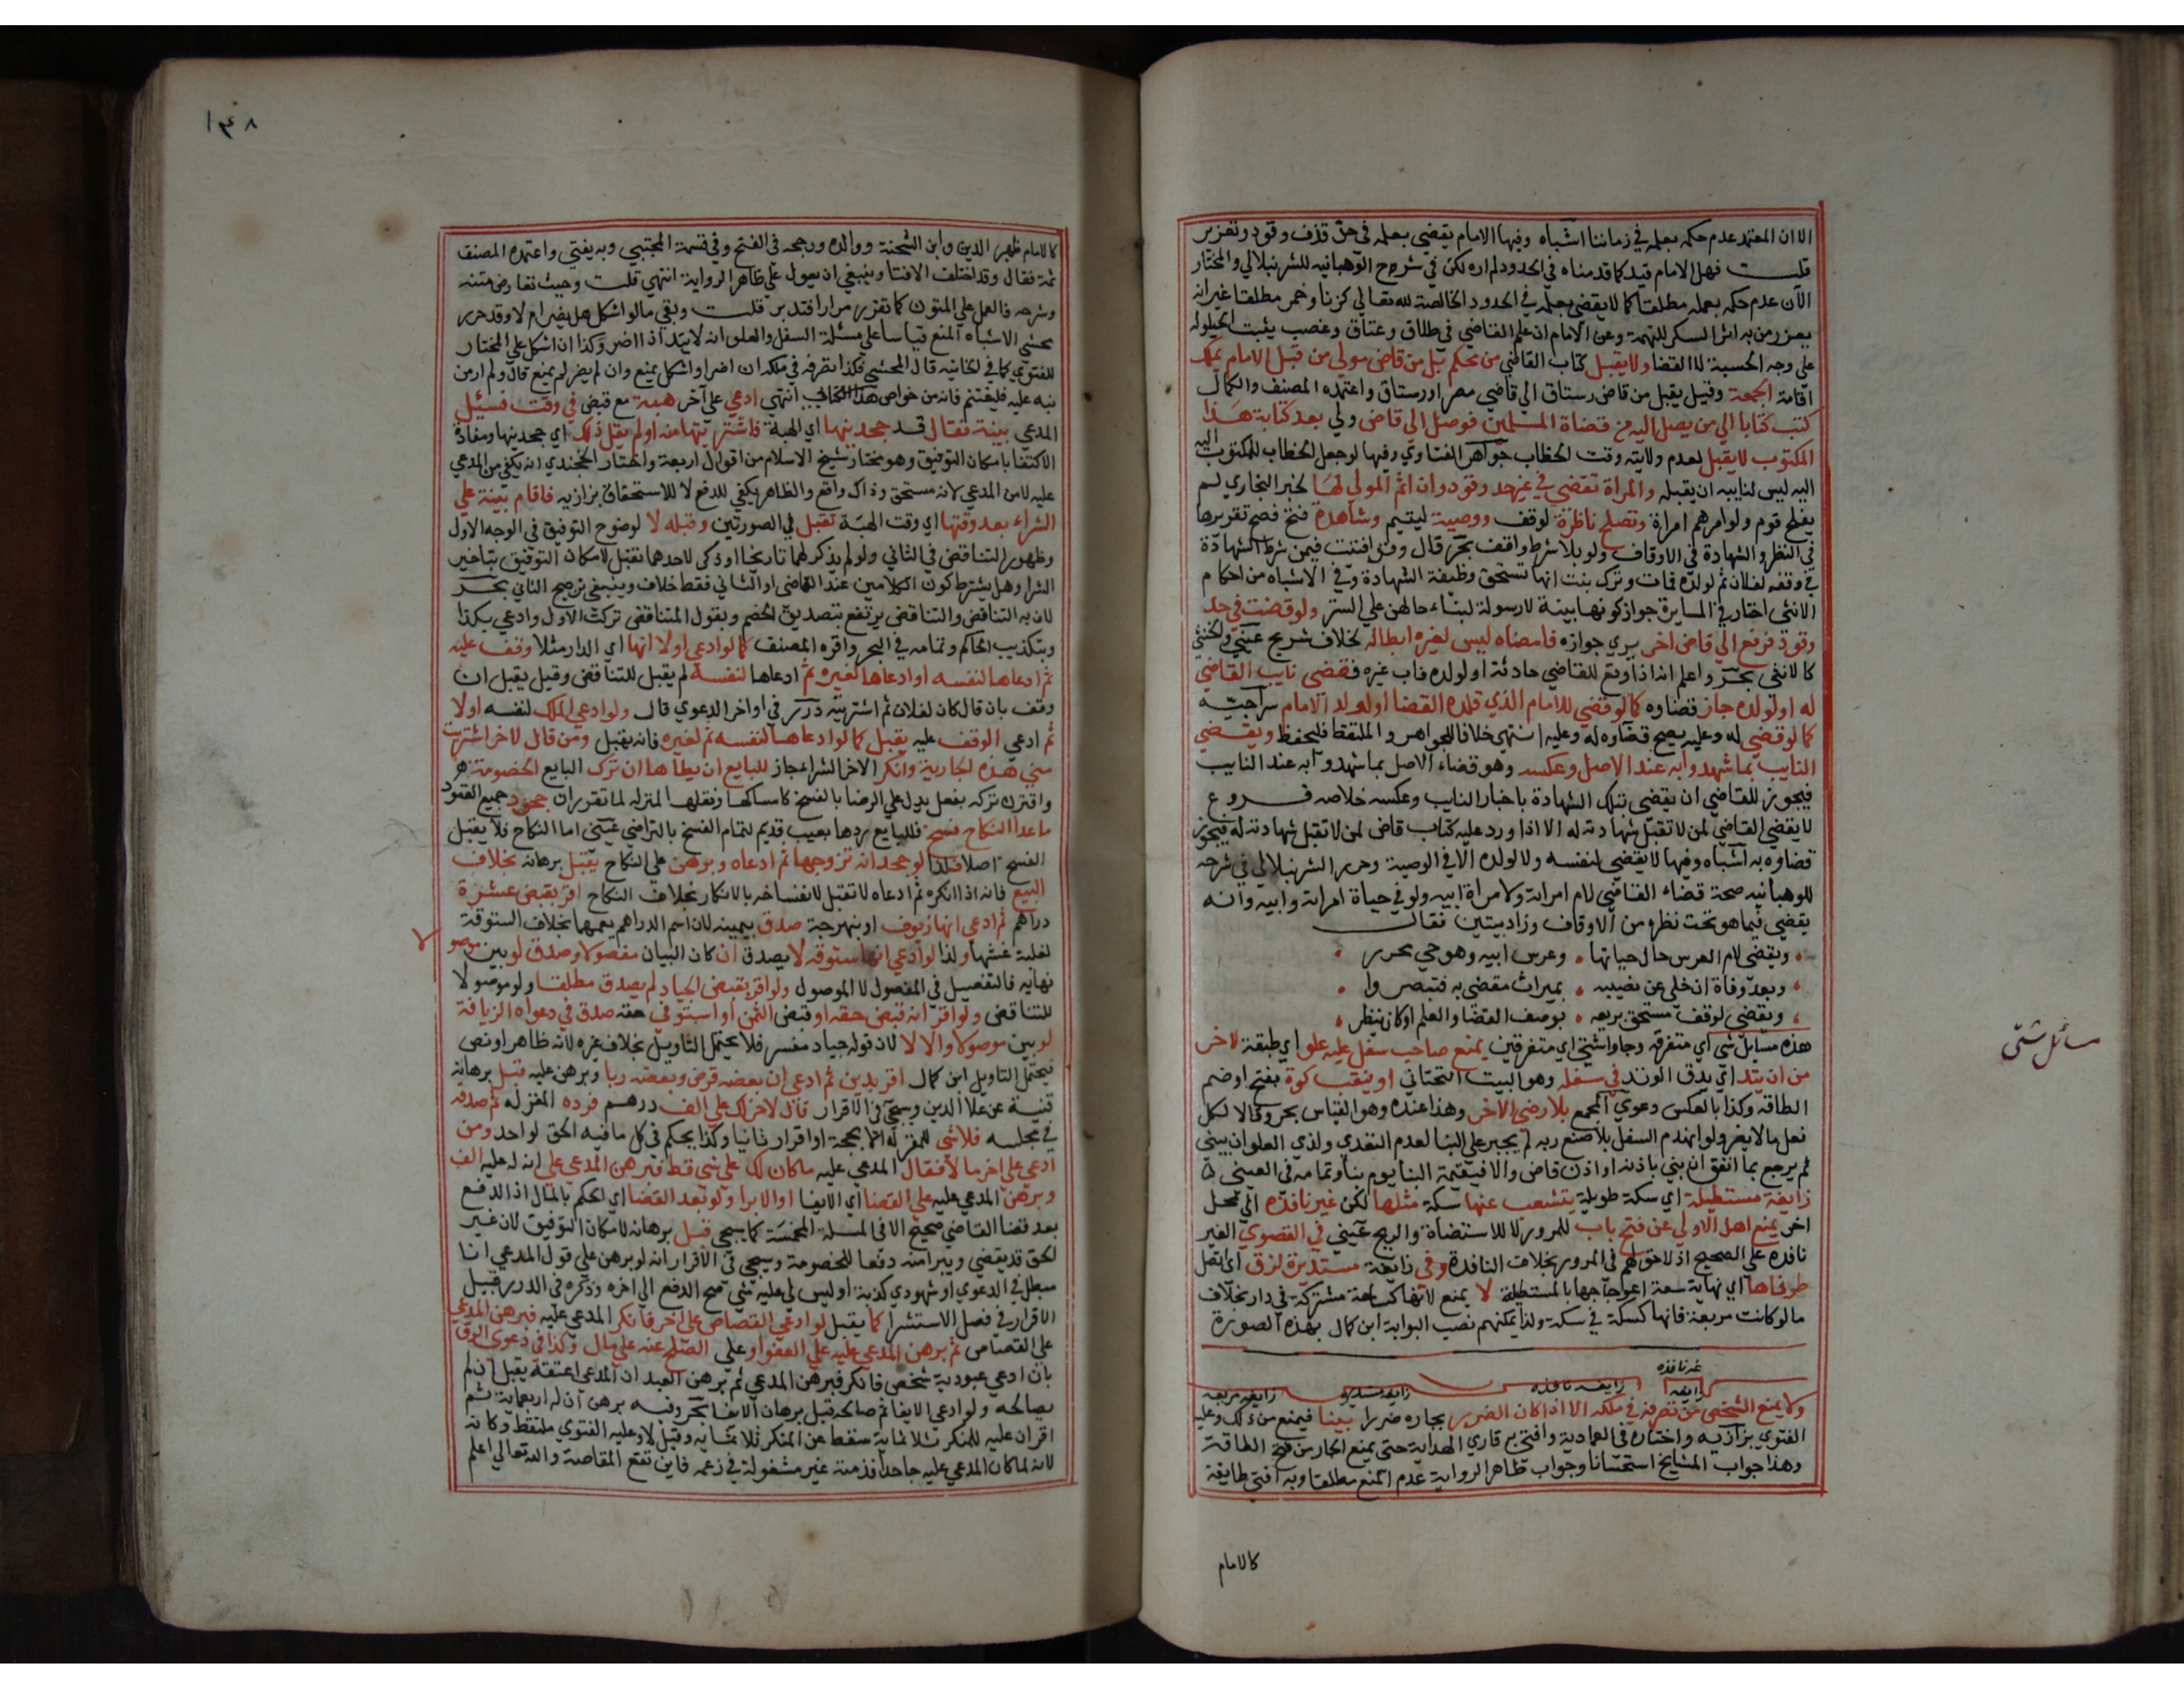 الا ان المعتمد عدم حكمه بعلمه في زماننا اشباه وفيها الامام يقضي بعلمه في حق قذف وقود وتعزير
قلت فهل الامام قيد كما قدمناه في الحدود لم اره لكن في شرح الوهبانيه للشرنبلالي والمختار
الآن عدم حكمه بعلمه مطلقا كما لا يقضي بعلمه في الحدود الخالصة لله تعالي كزنا وخمر مطلقا غير انه
يعزر من به اثر السكر للتهمة وعن الامام ان علم القاضي في طلاق وعتاق وغصب يثبت الحيلوله
علي وجه الحسبة لا القضا ولا يقبل كتاب القاضي من محكم بل من قاض مولي من قبل الامام يملك
اقامة الجمعة وقيل يقبل من قاض رستاق الي قاضي مصر او رستاق واعتمده المصنف والكمال
كتب كتابا الي من يصل اليه من قضاة المسلمين فوصل الي قاض ولي بعد كتابة هذا
المكتوب لا يقبل لعدم ولايته وقت الخطاب جواهر الفتاوي وفيها لو جعل الخطاب للمكتوب اليه
اليه ليس لنايبه ان يقبله والمراة تقضي في غير حد وقود وان اثم المولي لها لخبر البخاري لم
يفلح قوم ولوا امرهم امراة وتصلح ناظرة لوقف ووصية ليتيم وشاهدة فتح فصح تقريرها
في النظر والشهادة في الاوقاف ولو بلا شرط واقف بحر قال وقد افتيت فيمن شرط الشهادة
في وقفه لفلان ثم لولده فمات وترك بنت انها تستحق وظيفة الشهادة وفي الاشباه من احكام
الانثى اختار في المسايرة جواز كونها نبية لا رسولة لبناء حالهن علي الستر ولو قضت في حد
وقود فرفع الي قاض اخر يري جوازه فامضاه ليس لغيره ابطاله لخلاف شريح عيني والخنثي
كالانثي بحر واعلم انه اذا وقع للقاضي حادثة او لولده فاناب غيره فقضي نايب القاضي
له او لولده جاز قضاوه كما لو قضي للامام الذي قلده القضا او لولد الامام سراجيه
كما لو قضي له وعليه يصح قضاوه له وعليه انتهي خلافا للجواهر والملتقط فليحفظ ويقضي
النايب بما شهدوا به عند الاصل وعكسه وهو قضاء الاصل بما شهدوا به عند النايب
فيجوز للقاضي ان يقضي بتلك الشهادة باخبار النايب وعكسه خلاصه فروع
لا يقضي القاضي لمن لا تقبل شهادته له الا اذا ورد عليه كتاب قاض لمن لا تقبل شهادته له فيجوز
قضاوه به اشباه وفيها لا يقضي لنفسه ولا لولده الا في الوصية وحرر الشرنبلالي في شرحه
للوهبانيه صحة قضاء القاضي لام امراته ولامراة ابيه ولو في حياة امراته وابيه وانه
يقضي فيما هو تحت نظره من الاوقاف وزاد بيتين فقال
ويقضي لام العرس حال حياتها • وعرس ابيه وهو حي محرر
وبعد وفاة ان خلي عن نصيبه • بميراث مقضي به فتبصروا
ويقضي لوقف مستحق بريعه • بوصف القضا والعلم او كان ينظر
هذه مسائل شتي اي متفرقه وجاوا شتي اي متفرقين يمنع صاحب سفل عليه علو اي طبقة لاخر
من ان يتد اي يدق الوتد في سفله وهو البيت التحتاني او ينقب كوة بفتح او ضم
الطاقه وكذا بالعكس دعوي المجمع بلا رضي الاخر وهذا عنده وهو القياس بحر وقالا لكل
فعل ما لا يضر ولو انهدم السفل بلا صنع ربه لم يجبر علي البنا لعدم التعدي ولذي العلو ان يبني
ثم يرجع بما انفق ان بني باذنه او اذن قاض والا فبقيمة البنا يوم بنا وتمامه في العيني
زايغة مستطيلة اي سكة طويلة يتشعب عنها سكة مثلها لكن غير نافذه الي محل
اخر يمنع اهل الاولي عن فتح باب للمرور لا للاستضاة والريح عيني في القصوي الغير
نافذه علي الصحيح اذ لا حق لهم في المرور بخلاف النافذة وفي زايغة مستديرة لزق اي اتصل
طرفاها اي نهاية سعة اعوجاجها بالمستطيلة لا يمنع لانها كساحة مشتركة في دار بخلاف
ما لو كانت مربعة فانها كسكة في سكة ولذا يمكنهم نصب البوابة ابن كمال بهذه الصورة
غير نافذه
زايغه
زايغه نافذه
زايغه مستديره
زايغه مربعه
ولا يمنع الشخص من تصرفه في ملكه الا اذا كان الضرر بجاره ضررا بينا فيمنع من ذلك وعليه
الفتوي بزازيه واختاره في العماديه وافتي به قاري الهداية حتي يمنع الجار من فتح الطاقة
وهذا جواب المشايخ استحسانا وجواب ظاهر الرواية عدم المنع مطلقا وبه افتي طايفة
كالامام
مسائل شتى
١٤٨
كالامام ظهير الدين وابن الشحنة ووالده ورجحه في الفتح وفي قسمة المجتبي وبه يفتي واعتمده المصنف
ثمة فقال وقد اختلف الافتا وينبغي ان يعول علي ظاهر الرواية انتهي قلت وحيث تعارض متنه
وشرحه فالعمل علي المتون كما تقرر مرارا فتدبر قلت وبقي ما لو اشكل هل يضر ام لا وقد حرر
محشي الاشباه المنع قياسا علي مسئلة السفل والعلو انه لا يتد اذا اضر وكذا ان اشكل علي المختار
للفتوي كما في الخانيه قال المحشي فكذا تصرفه في ملكه ان اضر او اشكل يمنع وان لم يضر لم يمنع قال ولم ار من
نبه عليه فليغتنم فانه من خواص هذا الكتاب انتهي ادعي علي آخر هبة مع قبض في وقت فسئل
المدعي بينة فقال قد جحدنيها اي الهبة فاشتريتها منه او لم يقل ذلك اي جحدنيها ومفاده
الاكتفا بامكان التوفيق وهو مختار شيخ الاسلام من اقوال اربعة واختار الخجندي انه يكفي من المدعي
عليه لا من المدعي لانه مستحق وذاك دافع والظاهر يكفي للدفع لا للاستحقاق بزازيه فاقام بينة علي
الشراء بعد وقتها اي وقت الهبة تقبل في الصورتين وقبله لا لوضوح التوفيق في الوجه الاول
وظهور التناقض في الثاني ولو لم يذكر لهما تاريخا او ذكر لاحدهما تقبل لامكان التوفيق بتاخير
الشرا وهل يشترط كون الكلامين عند القاضي او الثاني فقط خلاف وينبغي ترجيح الثاني بحر
لان به التناقض والتناقض يرتفع بتصديق الخصم وبقول المتناقض تركت الاول وادعي بكذا
وبتكذيب الحاكم وتمامه في البحر واقره المصنف كما لو ادعي اولا انها اي الدار مثلا وقف عليه
ثم ادعاها لنفسه او ادعاها لغيره ثم ادعاها لنفسه لم يقبل للتناقض وقيل يقبل ان
وفق بان قال كان لفلان ثم اشتريته درر في اواخر الدعوي قال ولو ادعي الملك لنفسه اولا
ثم ادعي الوقف عليه يقبل كما لو ادعاها لنفسه ثم لغيره فانه يقبل ومن قال لاخر اشتريت
مني هذه الجارية وانكر الاخر الشراء جاز للبايع ان يطاها ان ترك البايع الخصومة
واقترن تركه بفعل يدل علي الرضا بالفسخ كامساكها ونقلها لمنزله لما تقرر ان جحود جميع العقود
ما عدا النكاح فسخ فللبايع ردها بعيب قديم لتمام الفسخ بالتراضي عيني اما النكاح فلا يقبل
الفسخ اصلا فلذا لو جحد انه تزوجها ثم ادعاه وبرهن علي النكاح يقبل برهانه بخلاف
البيع فانه اذا انكره ثم ادعاه لا تقبل لانفساخه بالانكار بخلاف النكاح اقر بقبض عشرة
دراهم ثم ادعي انها زيوف او نبهرجة صدق بيمينه لان اسم الدراهم يعمها بخلاف الستوقة
لغلبة غشها ولذا لو ادعي انها ستوقة لا يصدق ان كان البيان مفصولا وصدق لو بين موصولا
نهايه فالتفصيل في المفصول لا الموصول ولو اقر بقبض الجياد لم يصدق مطلقا ولو موصولا
للتناقض ولو اقر انه قبض حقه او قبض الثمن او استوفي حقه صدق في دعواه الزيافة
لو بين موصولا والا لا لان قوله جياد مفسر فلا يحتمل التاويل بخلاف غيره لانه ظاهر او نص
فيحتمل التاويل ابن كمال اقر بدين ثم ادعي ان بعضه قرض وبعضه ربا وبرهن عليه قبل برهانه
قنية عن علا الدين وسيجي في الاقرار قال لاخر لك علي الف درهم فرده المقر له ثم صدقه
في مجلسه فلا شي للمقر له الا بحجة او اقرار ثانيا وكذا يحكم في كل ما فيه الحق لواحد ومن
ادعي علي اخر مالا فقال المدعي عليه ما كان لك علي شي قط فبرهن المدعي علي انه له عليه الف
وبرهن المدعي عليه علي القضا اي الايفا او الابرا ولو بعد القضا اي الحكم بالمال اذ الدفع
بعد قضا القاضي صحيح الا في المسئلة المخمسة كما سيجي قبل برهانه لامكان التوفيق لان غير
الحق قد يقضي ويبرا منه دفعا للخصومة وسيجي في الاقرار انه لو برهن علي قول المدعي انا
مبطل في الدعوي او شهودي كذبة او ليس لي عليه شي صح الدفع الي اخره وذكره في الدرر قبيل
الاقرار في فصل الاستشرا كما يقبل لو ادعي القصاص علي اخر فانكر المدعي عليه فبرهن المدعي
علي القصاص ثم برهن المدعي عليه علي العفو او علي الصلح عنه علي مال وكذا في دعوي الرق
بان ادعي عبودية شخص فانكر فبرهن المدعي ثم برهن العبد ان المدعي اعتقه يقبل ان لم
يصالحه ولو ادعي الايفا ثم صالحه قبل برهانه الايفا بحر وفيه برهن ان له اربعماية ثم
اقر ان عليه للمنكر ثلاثماية سقط عن المنكر ثلاثمايه وقيل لا وعليه الفتوي ملتقط وكانه
لانه لما كان المدعي عليه جاحدا فذمته غير مشغولة في زعمه فاين تقع المقاصة والله تعالي اعلم